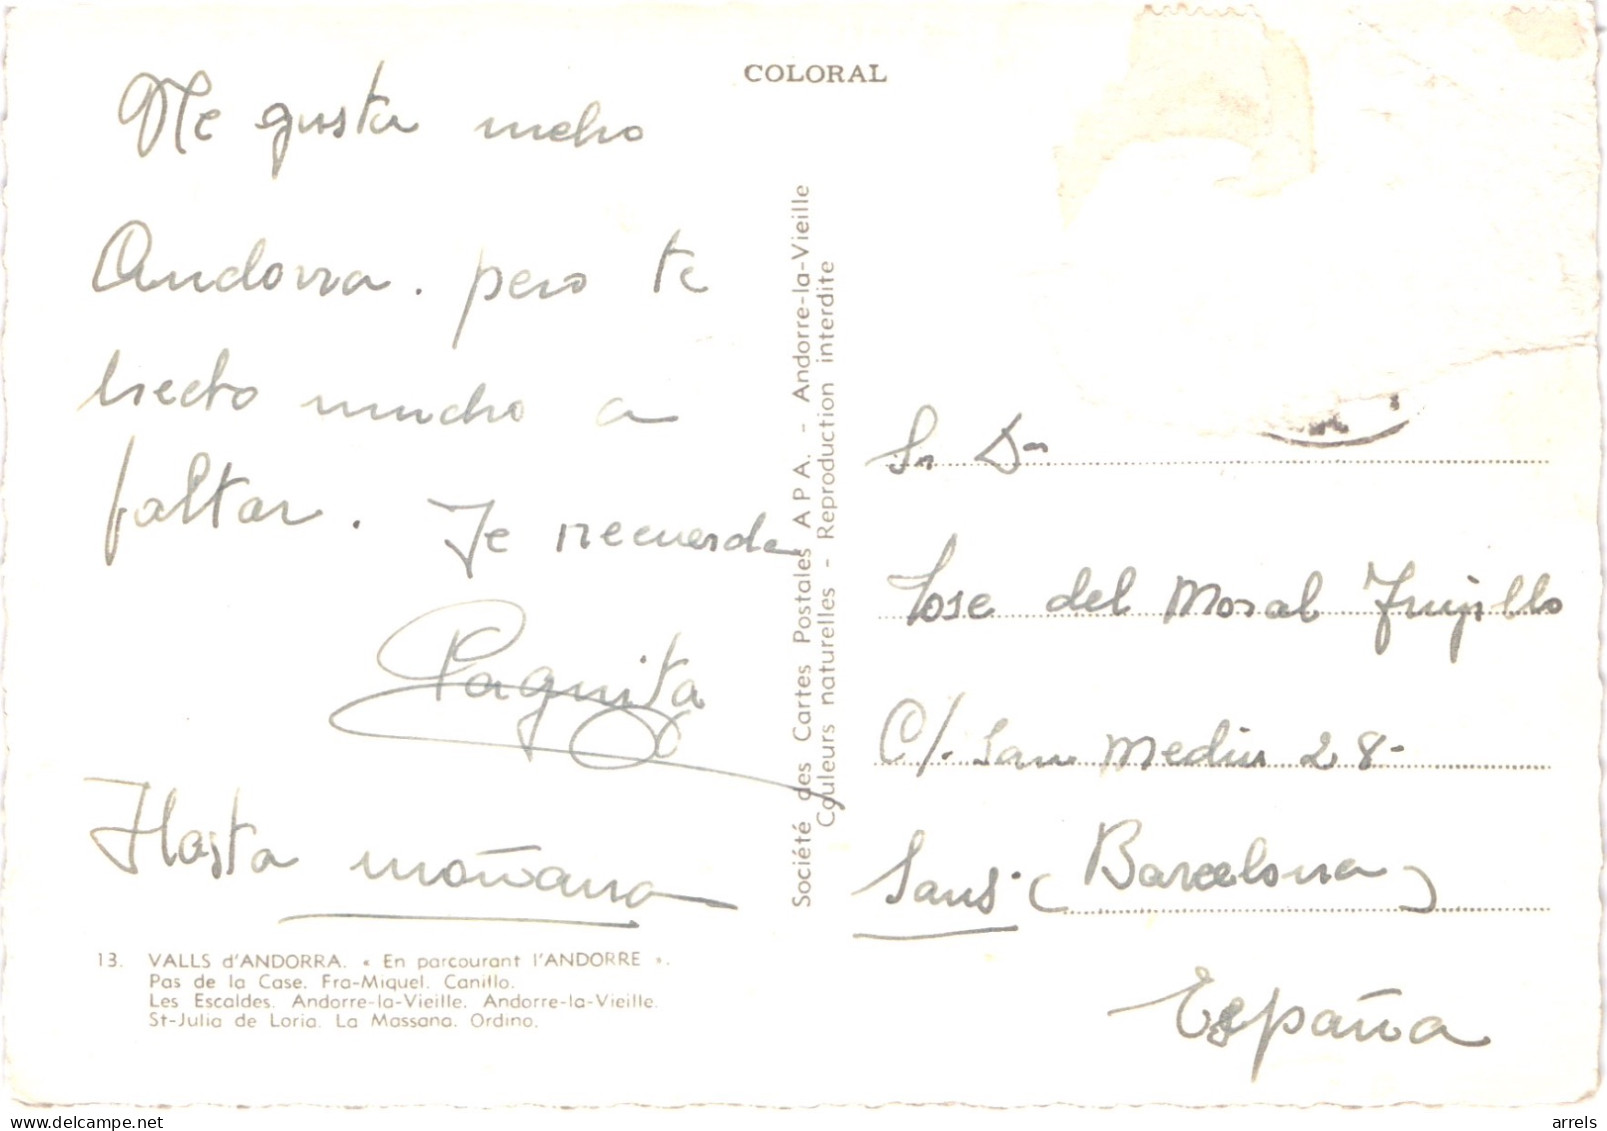 COLORAL
Me gusta mcho
Andorra. pero te
hecto mucho a
faltar. Te recuerda
Paquita
Hasta mañana
13. VALLS d'ANDORRA. « En parcourant l'ANDORRE ».
Pas de la Case. Fra-Miquel. Canillo.
Les Escaldes. Andorre-la-Vieille. Andorre-la-Vieille.
St-Julia de Loria. La Massana. Ordino.
Société des Cartes Postales A P A. - Andorre-la-Vieille
Couleurs naturelles - Reproduction interdite
Sr Dn
Jose del Moral Trujillo
C/. San Medin 28-
Sans. (Barcelona)
España
arrels